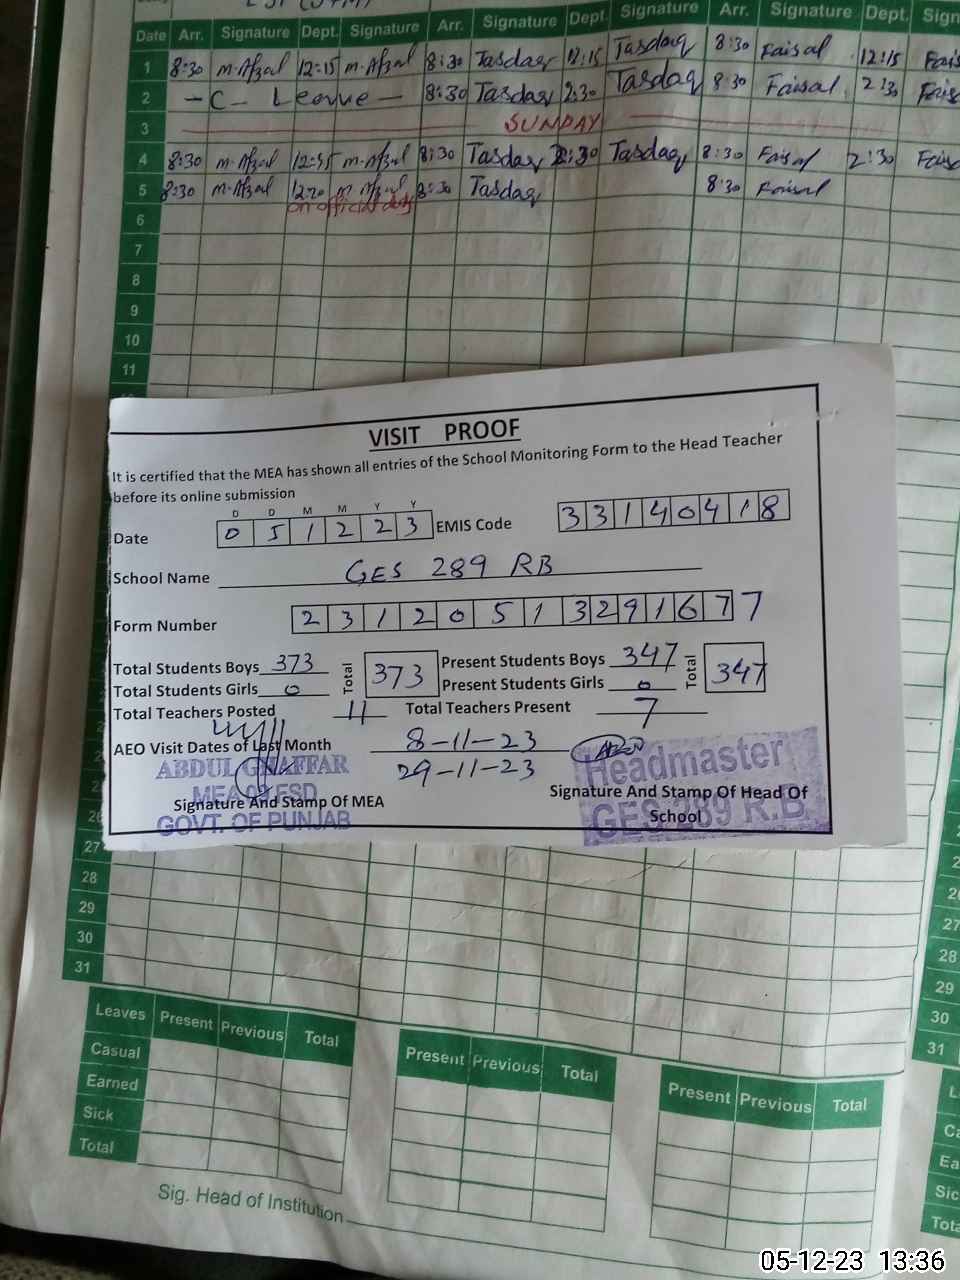 Date Arr. Signature Dept. Signature Arr. Signature Dept. Signature Arr. Signature Dept. Sign
1 8:30 M.Afzal 12:15 M.Afzal 8:30 Tasdaq 12:15 Tasdaq 8:30 Faisal 12:15 Fais
2 - C - Leave - 8:30 Tasdaq 2:30 Tasdaq 8:30 Faisal 2:30 Fais
3 SUNDAY
4 8:30 M.Afzal 12:55 M.Afzal 8:30 Tasdaq 2:30 Tasdaq 8:30 Faisal 2:30 Faisa
5 8:30 M.Afzal 12:20 M.Afzal 8:30 Tasdaq 8:30 Faisal
on official duty
6
7
8
9
10
11
VISIT PROOF
It is certified that the MEA has shown all entries of the School Monitoring Form to the Head Teacher
before its online submission
D D M M Y Y
Date 0 5 1 2 2 3 EMIS Code 3 3 1 4 0 4 1 8
School Name GES 289 RB
Form Number 2 3 1 2 0 5 1 3 2 9 1 6 7 7 7
Total Students Boys 373 Total 373 Present Students Boys 347 Total 347
Total Students Girls 0 Present Students Girls 0
Total Teachers Posted 11 Total Teachers Present 7
AEO Visit Dates of Last Month 8-11-23
29-11-23
ABDUL GHAFFAR
MEA 09 FSD
GOVT. OF PUNJAB
Signature And Stamp Of MEA
Headmaster
GES 289 R.B
Signature And Stamp Of Head Of
School
26
27
28
29
30
31
27
28
29
30
31
Leaves Present Previous Total Present Previous Total Present Previous Total
Casual
Earned
Sick
Total
Sig. Head of Institution
Ca
Ea
Sic
Tota
05-12-23 13:36